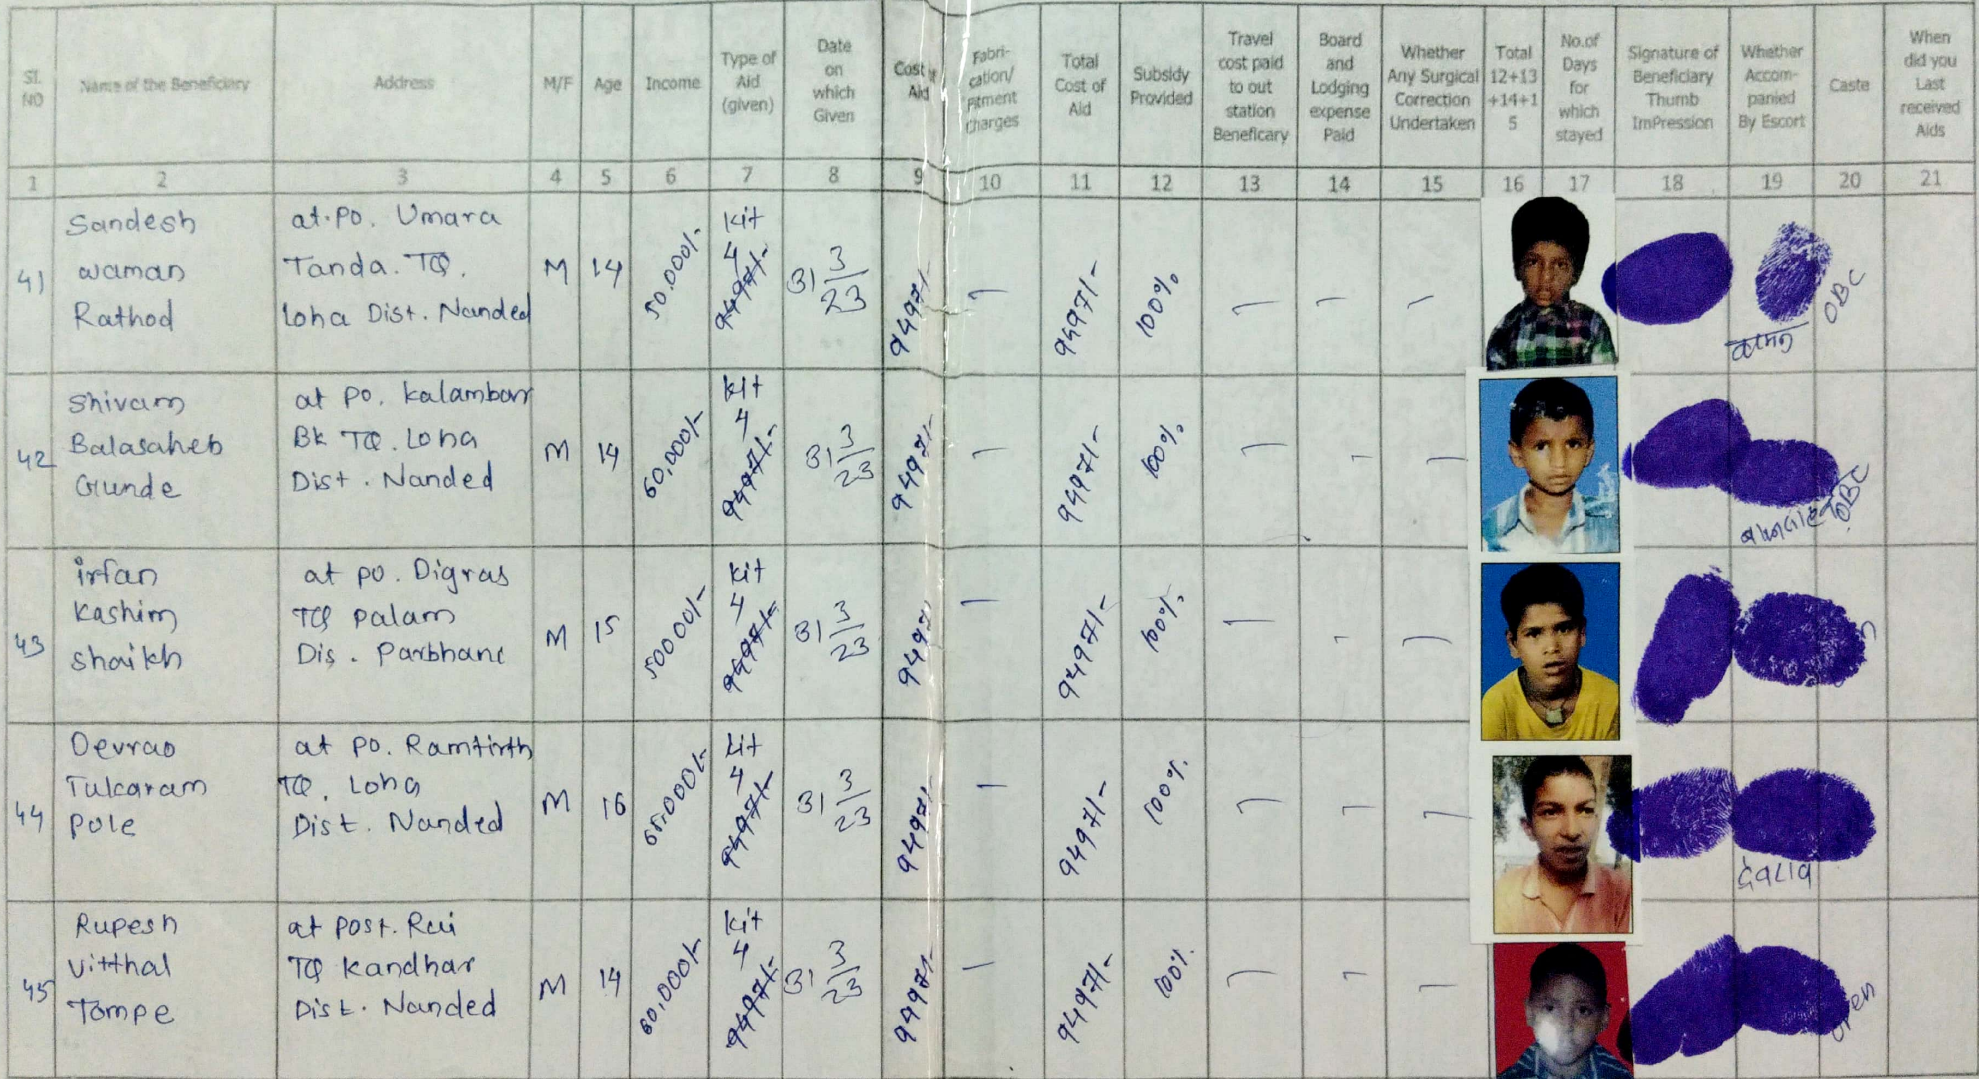 Sl. NO
Name of the Beneficiary
Address
M/F
Age
Income
Type of Aid (given)
Date on which Given
Cost of Aid
Fabri-cation/ Fitment Charges
Total Cost of Aid
Subsidy Provided
Travel cost paid to out station Beneficary
Board and Lodging expense Paid
Whether Any Surgical Correction Undertaken
Total 12+13 +14+1 5
No.of Days for which stayed
Signature of Beneficiary Thumb ImPression
Whether Accom-panied By Escort
Caste
When did you Last received Aids
1 2 3 4 5 6 7 8 9 10 11 12 13 14 15 16 17 18 19 20 21
41
Sandesh
waman
Rathod
at.po. Umara
Tanda. TQ.
Loha Dist. Nanded
M 14 50,000/-
Kit
4
31 3/23
9497/- 9497/- 100%
वामन
OBC
42
Shivam
Balasaheb
Gunde
at po. Kalambar
Bk TQ. Loha
Dist. Nanded
M 14 60,000/-
Kit
4
9497/-
31 3/23
9497/- 9497/- 100%
OBC
43
irfan
Kashim
Shaikh
at po. Digras
TQ palam
Dis. Parbhani
M 15 50000/-
Kit
4
9497/-
31 3/23
9497/- 9497/- 100%
44
Devrao
Tukaram
Pole
at po. Ramtirth
TQ. Loha
Dist. Nanded
M 16 65,000/-
Kit
4
9497/-
31 3/23
9497/- 9497/- 100%
देवराव
45
Rupesh
Vitthal
Tompe
at post. Rui
TQ Kandhar
Dist. Nanded
M 14 60,000/-
Kit
4
9497/-
31 3/23
9497/- 9497/- 100%
open